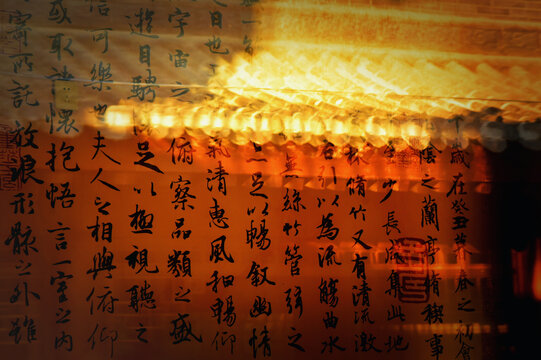 歲在癸丑暮春之初會
陰之蘭亭脩稧事
少長咸集此地
林脩竹又有清流激
右引以為流觴曲水
無絲竹管弦之
足以暢敘幽情
日也 氣清惠風和暢仰
宇宙之 俯察品類之盛
遊目騁 足以極視聽之
信可樂也夫人之相與俯仰
或取諸懷抱悟言一室之內
寄所託放浪形骸之外雖